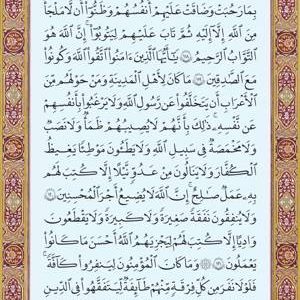 بِمَا رَحُبَتْ وَضَاقَتْ عَلَيْهِمْ أَنفُسُهُمْ وَظَنُّوٓا۟ أَن لَّا مَلْجَأَ
مِنَ ٱللَّهِ إِلَّآ إِلَيْهِ ثُمَّ تَابَ عَلَيْهِمْ لِيَتُوبُوٓا۟ ۚ إِنَّ ٱللَّهَ هُوَ
ٱلتَّوَّابُ ٱلرَّحِيمُ ١١٨ يَـٰٓأَيُّهَا ٱلَّذِينَ ءَامَنُوا۟ ٱتَّقُوا۟ ٱللَّهَ وَكُونُوا۟
مَعَ ٱلصَّـٰدِقِينَ ١١٩ مَا كَانَ لِأَهْلِ ٱلْمَدِينَةِ وَمَنْ حَوْلَهُم مِّنَ
ٱلْأَعْرَابِ أَن يَتَخَلَّفُوا۟ عَن رَّسُولِ ٱللَّهِ وَلَا يَرْغَبُوا۟ بِأَنفُسِهِمْ
عَن نَّفْسِهِۦ ۚ ذَٰلِكَ بِأَنَّهُمْ لَا يُصِيبُهُمْ ظَمَأٌ وَلَا نَصَبٌ
وَلَا مَخْمَصَةٌ فِى سَبِيلِ ٱللَّهِ وَلَا يَطَـُٔونَ مَوْطِئًا يَغِيظُ
ٱلْكُفَّارَ وَلَا يَنَالُونَ مِنْ عَدُوٍّ نَّيْلًا إِلَّا كُتِبَ لَهُم
بِهِۦ عَمَلٌ صَـٰلِحٌ ۚ إِنَّ ٱللَّهَ لَا يُضِيعُ أَجْرَ ٱلْمُحْسِنِينَ ١٢٠
وَلَا يُنفِقُونَ نَفَقَةً صَغِيرَةً وَلَا كَبِيرَةً وَلَا يَقْطَعُونَ
وَادِيًا إِلَّا كُتِبَ لَهُمْ لِيَجْزِيَهُمُ ٱللَّهُ أَحْسَنَ مَا كَانُوا۟
يَعْمَلُونَ ١٢١ وَمَا كَانَ ٱلْمُؤْمِنُونَ لِيَنفِرُوا۟ كَآفَّةً ۚ
فَلَوْلَا نَفَرَ مِن كُلِّ فِرْقَةٍ مِّنْهُمْ طَآئِفَةٌ لِّيَتَفَقَّهُوا۟ فِى ٱلدِّينِ